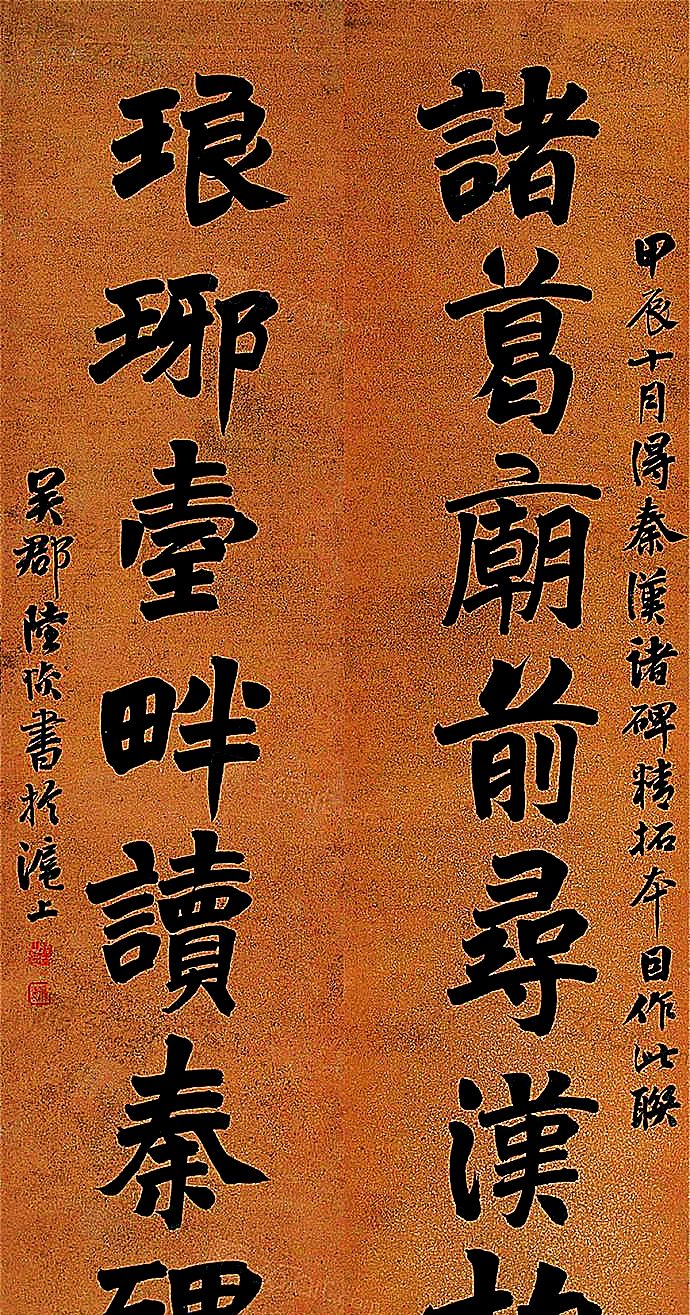 甲辰十月得秦漢諸碑精拓本因作此聯
諸葛廟前尋漢
琅琊臺畔讀秦碑
吳郡陸恢書於滬上